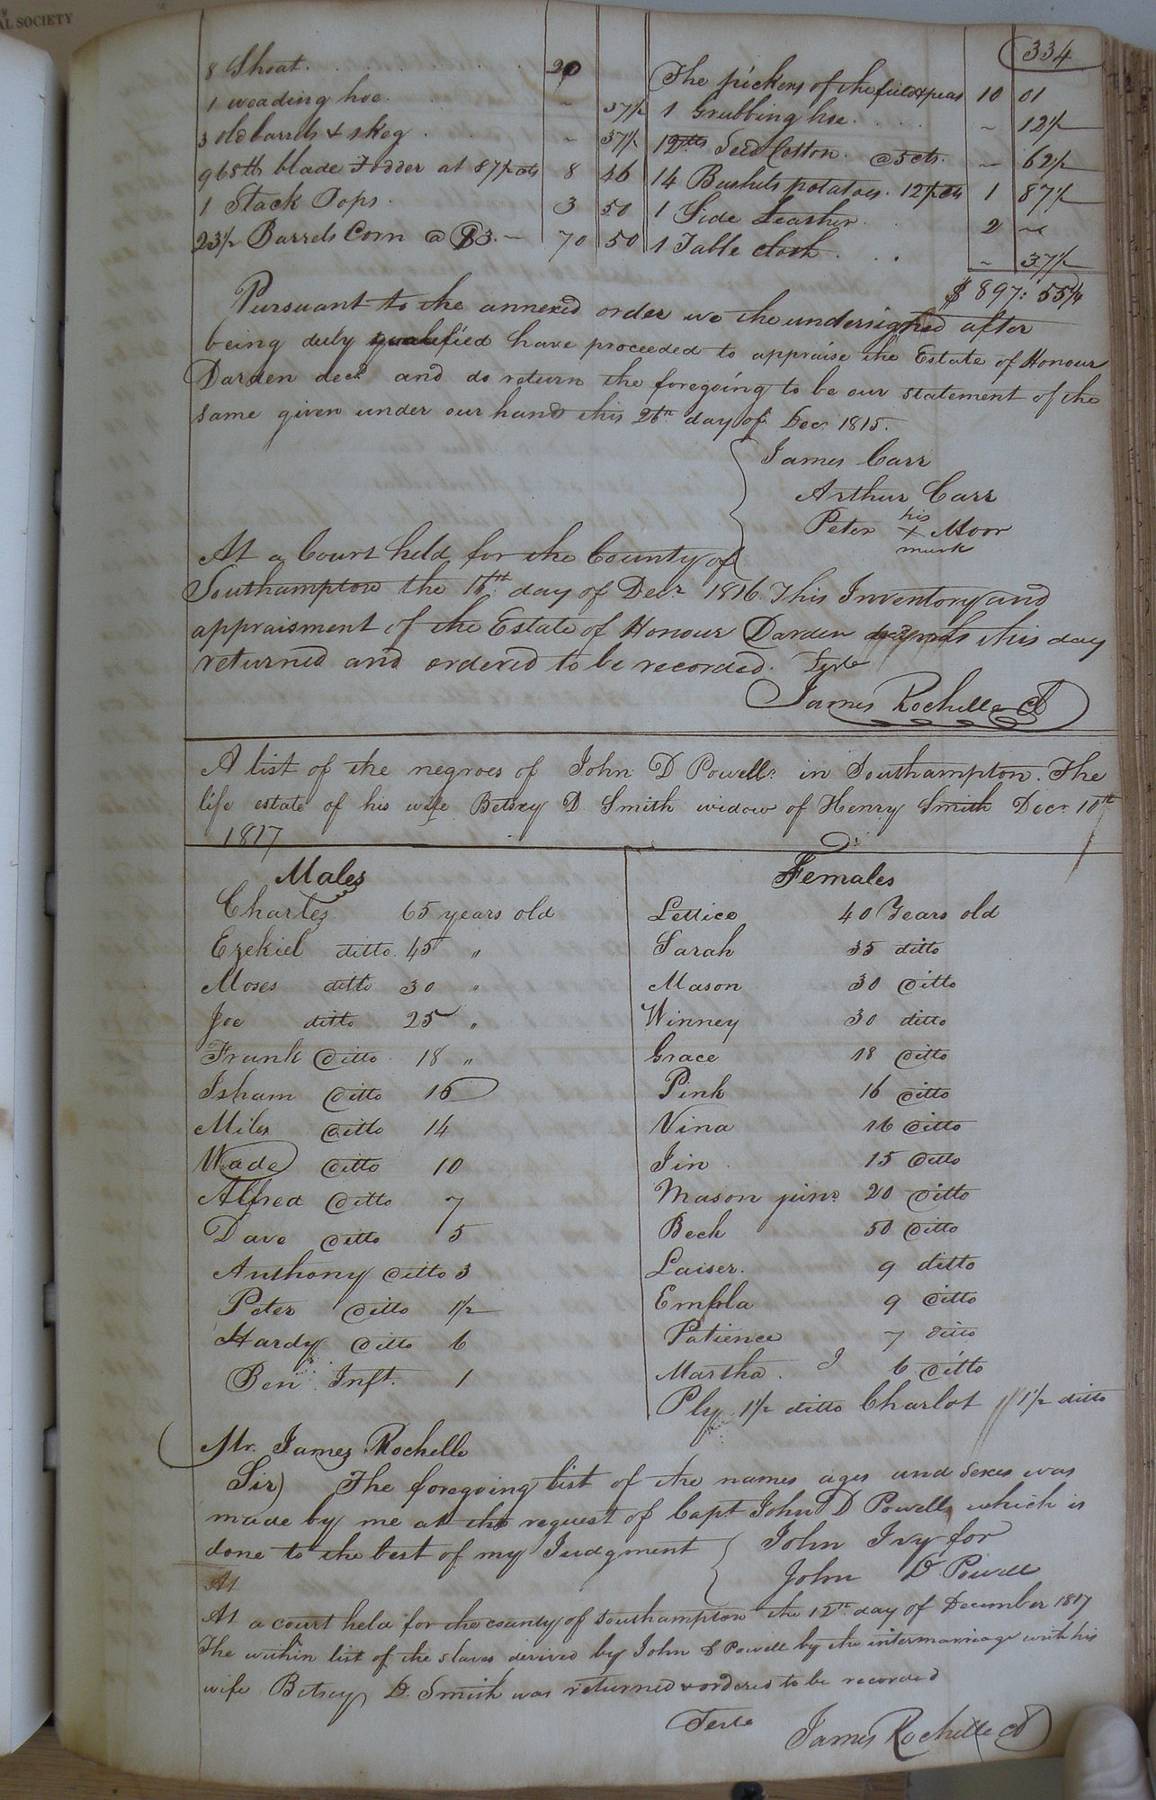 AL SOCIETY
334
8 Shoat 20
1 weading hoe - 37½
3 old barrels & keg - 37½
965 lb blade Fodder at 87½ cts 8 46
1 Stack Tops 3 50
23½ Barrels Corn @ $3.- 70 50
The pickers of the field peas 10 01
1 Grubbing hoe - 12½
Seed Cotton @ 5 cts. - 62½
14 Bushels potatoes. 12½ cts 1 87½
1 Side Leather 2 -
1 Table cloth - 37½
$ 897: 55¼
Pursuant to the annexed order we the undersigned after
being duly qualified have proceeded to appraise the Estate of Honour
Darden decd and do return the foregoing to be our statement of the
same given under our hand this 26th day of Decr 1815.
James Carr
Arthur Carr
Peter his x mark Moor
At a Court held for the County of
Southampton the 16th day of Decr 1816 This Inventory and
appraisment of the Estate of Honour Darden this day
returned and ordered to be recorded. Teste
James Rochelle Cl
A list of the negroes of John D Powell in Southampton. The
life estate of his wife Betsey D Smith widow of Henry Smith Decr 10th
1817
Males
Charles 65 years old
Ezekiel ditto 45 "
Moses ditto 30 "
Joe ditto 25 "
Frank ditto 18 "
Isham ditto 15
Miles ditto 14
Wade ditto 10
Alfred ditto 7
Dave ditto 5
Anthony ditto 3
Peter ditto 1½
Hardy ditto 6
Ben Inft. 1
Females
Lettice 40 Years old
Sarah 35 ditto
Mason 30 ditto
Winney 30 ditto
Grace 18 ditto
Pink 16 ditto
Vina 16 ditto
Jin 15 ditto
Mason junr 20 ditto
Beck 50 ditto
Laiser. 9 ditto
Embla 9 ditto
Patience 7 ditto
Martha. 6 ditto
Ply 1½ ditto Charlot 1½ ditto
Mr. James Rochelle
Sir) The foregoing list of the names ages and sexes was
made by me at the request of Capt John D Powell which is
done to the best of my Judgment
John Ivy for
John D. Powell
At
At a court held for the county of Southampton the 15th day of December 1817
The within list of the slaves derived by John D Powell by the intermarriage with his
wife Betsey D. Smith was returned & ordered to be recorded
Teste James Rochelle Cl